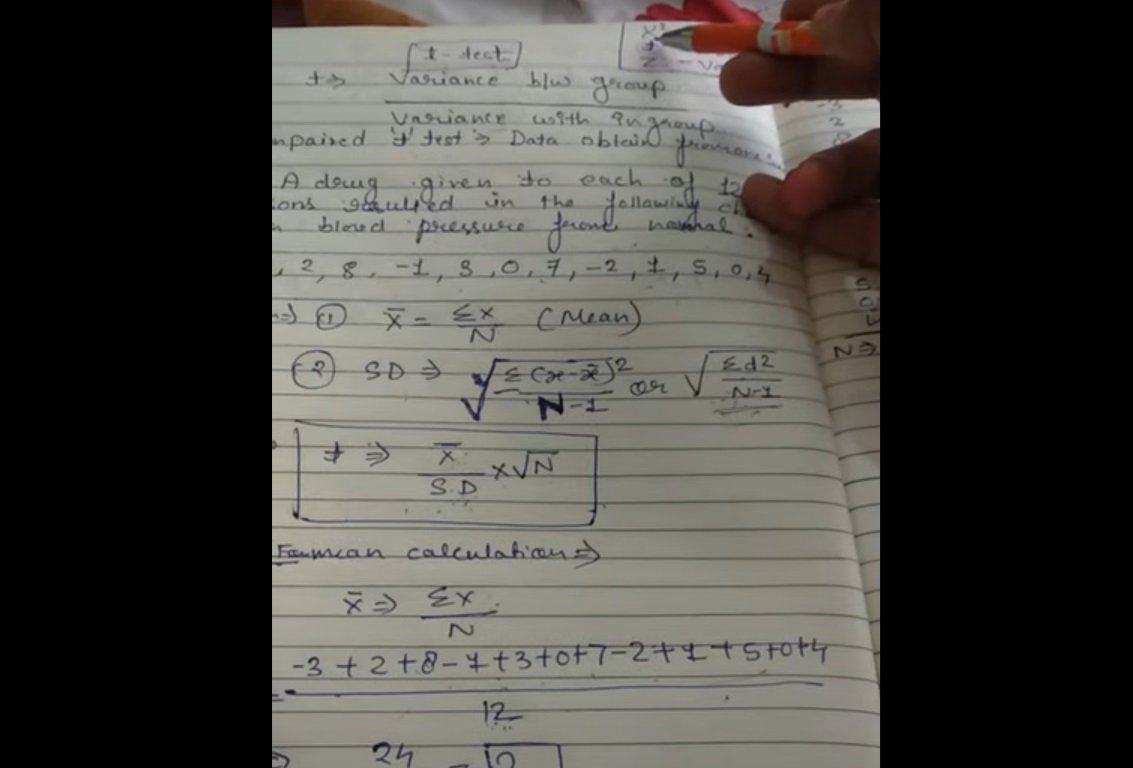 t - test
x²
t
z - Va
t ⇒ Variance b/w group
Variance with in group
npaired 't' test ⇒ Data obtain from
A drug given to each of 12
ions resulted in the following ch
n blood pressure from normal :
, 2, 8, -1, 3, 0, 7, -2, 1, 5, 0, 4
=) ① x̄ = Σx/N (Mean)
② SD ⇒ √Σ(x-x̄)²/N-1 or √Σd²/N-1
t ⇒ x̄/S.D × √N
For mean calculation ⇒
x̄ ⇒ Σx/N
-3 + 2 + 8 - 1 + 3 + 0 + 7 - 2 + 1 + 5 + 0 + 4
12
24 = 2
-3
2
8
5
0
N ⇒